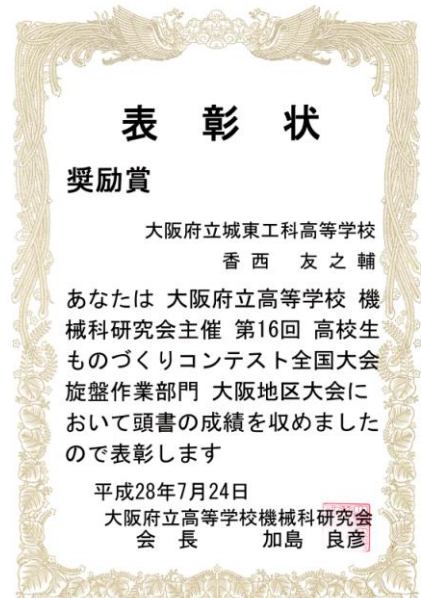 表 彰 状
奨励賞
大阪府立城東工科高等学校
香 西 友 之 輔
あなたは 大阪府立高等学校 機
械科研究会主催 第16回 高校生
ものづくりコンテスト全国大会
旋盤作業部門 大阪地区大会に
おいて頭書の成績を収めました
ので表彰します
平成28年7月24日
大阪府立高等学校機械科研究会
会 長 加島 良彦